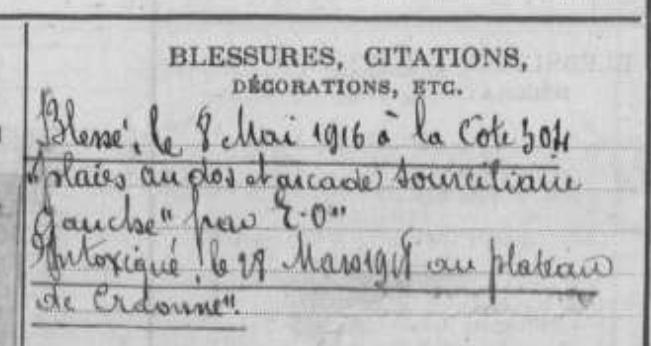 BLESSURES, CITATIONS,
DÉCORATIONS, ETC.
Blessé, le 8 Mai 1916 à la Cote 304
"plaies au dos et arcade sourcilière
gauche" par E.O"
Intoxiqué le 28 Mars 1918 au plateau
de Craonne".